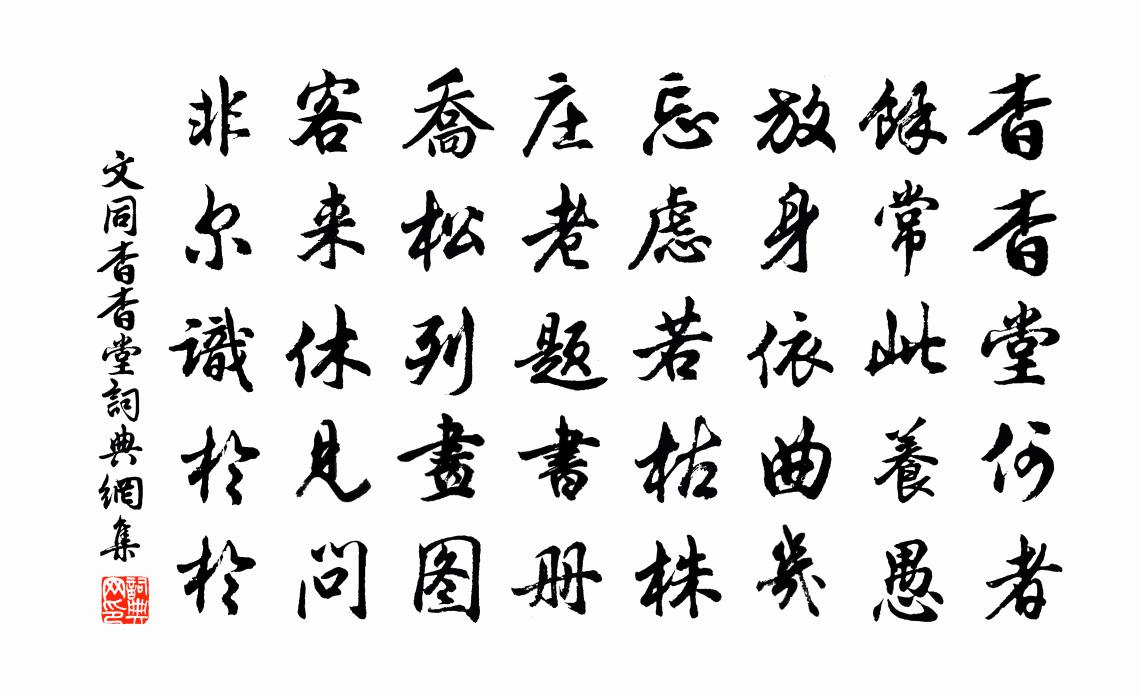 杳杳堂何者
餘常此養愚
放身依曲幾
忘慮若枯株
庄老题書册
喬松列畫图
客来休見問
非尔識於於
文同杳杳堂詞典網集
詞典网印